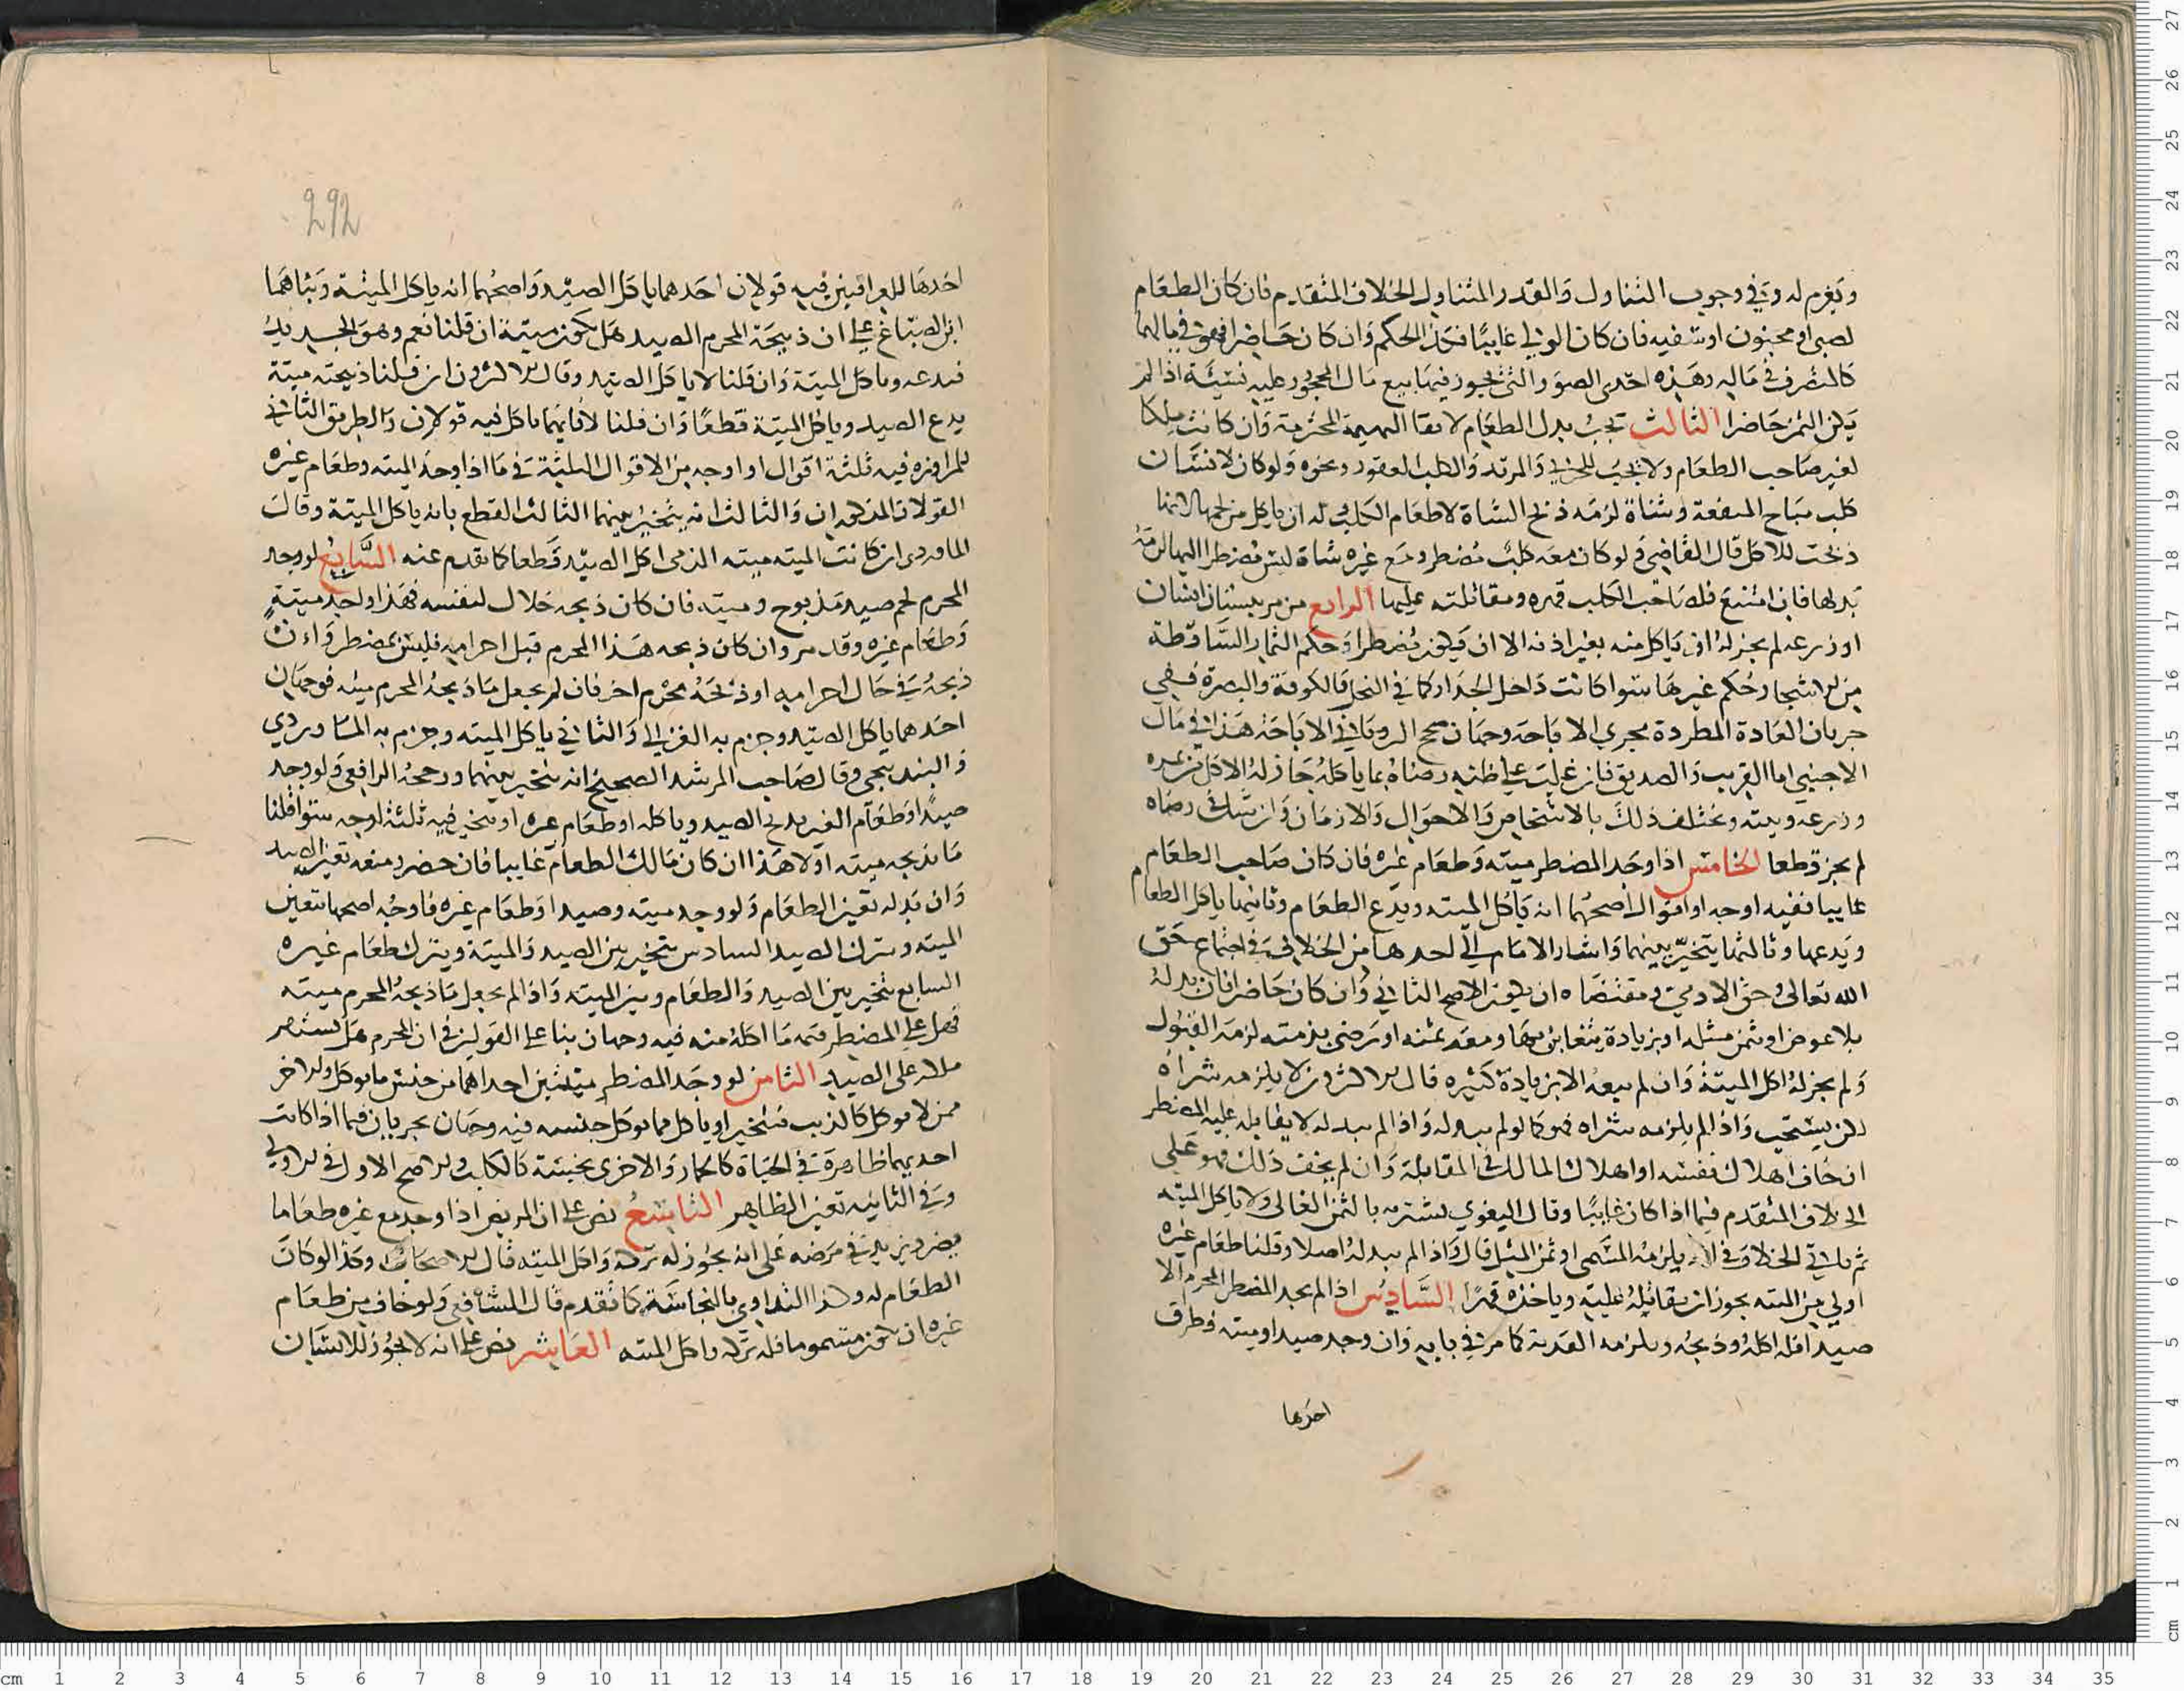 ويغرم له وفي وجوب التناول والقدر المتناول الخلاف المتقدم فان كان الطعام
لصبي او مجنون او سفيه فان كان الولي غايبًا فكذا الحكم وان كان حاضرا فهو في مالهما
كالتصرف في ماله وهذه احدى الصور التي يجوز فيها بيع مال المحجور عليه نسيئة اذا لم
يكن الثمن حاضرا الثالث يجب بدل الطعام لابقا البهيمة المحترمة وان كانت ملكا
لغير صاحب الطعام ولا يجب للحربي والمرتد والكلب العقور ونحوه ولو كان لانسان
كلب مباح المنفعة وشاة لزمه ذبح الشاة لاطعام الكلب وله ان ياكل من لحمها لانها
ذبحت للاكل قال القاضي ولو كان معه كلب مضطر ومع غيره شاة ليس مضطرا اليها لزمه
بدلها فان امتنع فلصاحب الكلب قهره ومقاتلته عليها الرابع من مر ببستان انسان
او زرعه لم يجز له ان ياكل منه بغير اذنه الا ان يكون مضطرا وحكم الثمار الساقطة
من الاشجار حكم غيرها سوا كانت داخل الجدار كما في النخل فالكوفة والبصرة ففي
جريان العادة المطردة مجرى الاباحة وجهان صحح الروياني الاباحة هذا في مال
الاجنبي اما القريب والصديق فان غلب على ظنه رضاه بما ياكله جاز له الاكل من ثمره
وزرعه وبيته ويختلف ذلك بالاشخاص والاحوال والازمان وان شك في رضاه
لم يجز قطعا الخامس اذا وجد المضطر ميته وطعام غيره فان كان صاحب الطعام
غايبا ففيه اوجه او اقوال اصحهما انه ياكل الميته ويدع الطعام وثانيها ياكل الطعام
ويدعها وثالثها يتخير بينهما واشار الامام الى احدها من الخلاف في اجتماع حق
الله تعالى وحق الادمي ومقتضاه ان يكون الاصح الثاني وان كان حاضرا فان بدله
بلا عوض او بثمن مثله او بزيادة يتغابن بها ومعه ثمنه او رضي بذمته لزمه القبول
ولم يجز له اكل الميتة وان لم يبعه الا بزيادة كثيره قال الاكثرون لا يلزمه شراه
لكن يستحب واذا لم يلزمه شراه فهو كما لو لم يبدله واذا لم يبدله لا يقاتله عليه المضطر
ان خاف اهلاك نفسه او اهلاك المالك في المقاتلة وان لم يخف ذلك فهو على
الخلاف المتقدم فيما اذا كان غايبًا وقال البغوي يشتريه بالثمن الغالي ولا ياكل الميته
ثم ياتي الخلاف في انه يلزمه المسمى او ثمن المثل قال واذا لم يبدله اصلا وقلنا طعام غيره
اولى من الميته يجوز ان يقاتله عليه وياخذه قهرا السادس اذا لم يجد المضطر المحرم الا
صيدا فله اكله وذبحه ويلزمه الفدية كما مر في بابه وان وجد صيدا وميته فطرق
احدها
292
احدها للعراقيين فيه قولان احدهما ياكل الصيد واصحهما انه ياكل الميتة وبناهما
ابن الصباغ على ان ذبيحة المحرم الصيد هل تكون ميتة ان قلنا نعم وهو الجديد
فيدعه وياكل الميتة وان قلنا لا ياكل الصيد وقال الاكثرون ان قلنا ذبيحته ميتة
يدع الصيد وياكل الميتة قطعًا وان قلنا لا فايهما ياكل فيه قولان والطريق الثاني
للمراوزه فيه ثلثة اقوال او اوجه من الاقوال الثلثة في ما اذا وجد الميته وطعام غيره
القولان المذكوران والثالث انه يتخير بينهما الثالث القطع بانه ياكل الميتة وقال
الماوردي ان كانت الميته ميته الذمي اكل الصيد قطعا كما تقدم عنه السابع لو وجد
المحرم لحم صيد مذبوح وميته فان كان ذبحه حلال لنفسه فهذا واجد ميتة
وطعام غيره وقد مر وان كان ذبحه هذا المحرم قبل احرامه فليس بمضطر وان
ذبحه في حال احرامه او ذبحه محرم اخر فان لم يجعل ما ذبحه المحرم ميته فوجهان
احدهما ياكل الصيد وجزم به الغزالي والثاني ياكل الميته وجزم به الماوردي
والبندنيجي وقال صاحب المرشد الصحيح انه يتخير بينهما ورجحه الرافعي ولو وجد
صيدًا وطعام الغير يذبح الصيد وياكله او طعام غيره او يتخير فيه ثلثة اوجه سوا قلنا
ما يذبحه ميته او لا هذا ان كان مالك الطعام غايبا فان حضر ومنعه تعين الصيد
وان بدله تعين الطعام ولو وجد ميته وصيدا وطعام غيره فاوجه اصحها تتعين
الميته ويترك الصيد السادس يتخير بين الصيد والميتة ويترك طعام غيره
السابع يتخير بين الصيد والطعام وبين الميته واذا لم يجعل ما ذبحه المحرم ميته
فهل على المضطر قيمة ما اكله منه فيه وجهان بنا على القولين في ان المحرم هل يستقر
ملكه على الصيد الثامن لو وجد المضطر ميتتين احداهما من جنس ما يوكل والاخر
ممن لا يوكل كالذيب فيتخير او ياكل مما يوكل جنسه فيه وجهان يجريان فيما اذا كانت
احديهما طاهرة في الحياة كالحمار والاخرى نجسة كالكلب والاصح الاول في الاولى
وفي الثانيه تعين الطاهر التاسع نص على ان المريض اذا وجد مع غيره طعاما
يضره يزيد في مرضه على انه يجوز له تركه واكل الميته قال الاصحاب وكذا لو كان
الطعام له وكذا التداوي بالنجاسة كما تقدم قال الشافعي ولو خاف من طعام
غيره ان يكون مسموما فله تركه واكل الميته العاشر نص على انه لا يجوز للانسان